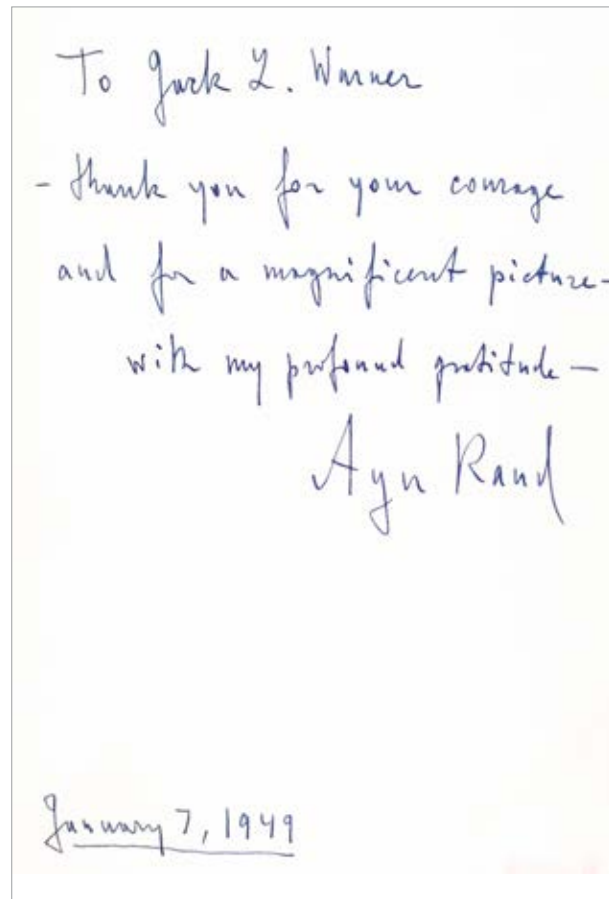 To Jack L. Warner
- thank you for your courage
and for a magnificent picture -
with my profound gratitude -
Ayn Rand
January 7, 1949